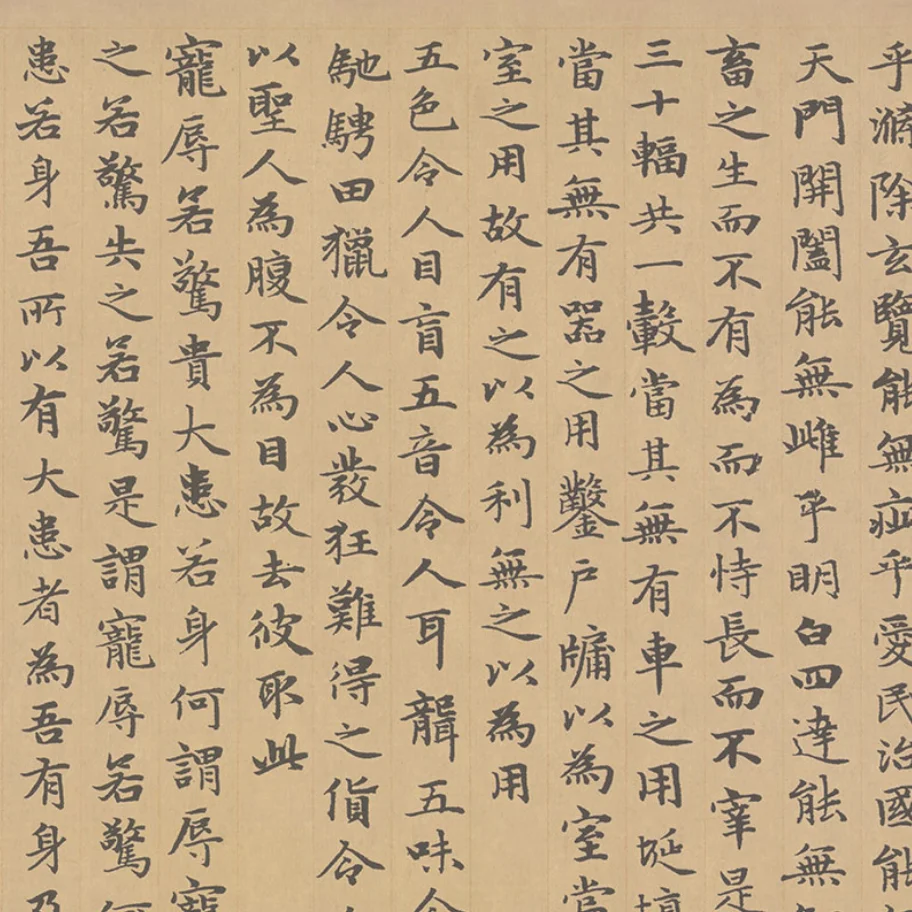 乎滌除玄覽能無疵乎愛民治國能
天門開闔能無雌乎明白四達能無
畜之生而不有為而不恃長而不宰是
三十輻共一轂當其無有車之用埏埴
當其無有器之用鑿戶牖以為室當
室之用故有之以為利無之以為用
五色令人目盲五音令人耳聾五味令
馳騁田獵令人心發狂難得之貨令人
以聖人為腹不為目故去彼取此
寵辱若驚貴大患若身何謂辱寵
之若驚失之若驚是謂寵辱若驚何
患若身吾所以有大患者為吾有身乃